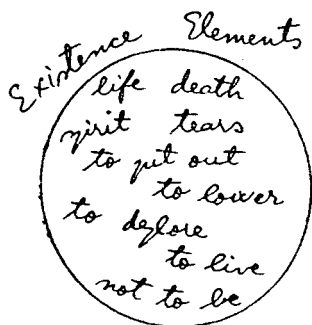 Existence Elements
life death
spirit tears
to put out
to lower
to deplore
to live
not to be